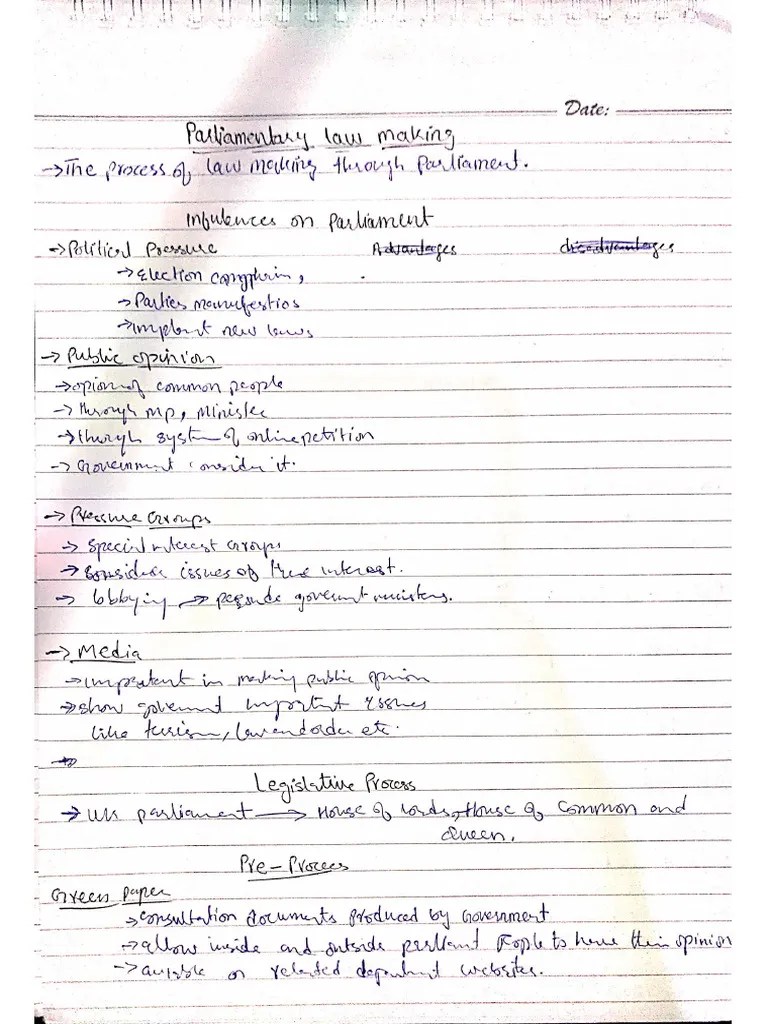 Date:
Parliamentary law making
→The process of law making through Parliament.
Influences on Parliament
→Political Pressure Advantages disadvantages
→Election
→Parties manufestios
→implent new laws
→ Public opinion
→opion of common people
→ through MP, Minister
→through system of online petition
→ Government consider it.
→ Pressure Groups
→ Special interest Groups
→ considers issues of their interest.
→ lobbying → government ministers.
→ Media
→ important in making public opinion
→ show government important issues
like terism, law and order etc.
Legislative Process
→ UK parliament → House of Lords, House of Common and
Queen.
Pre-Process
Green paper
→ consultation documents produced by Government
→ allow inside and outside parliament people to have their opinion
→ on related websites.